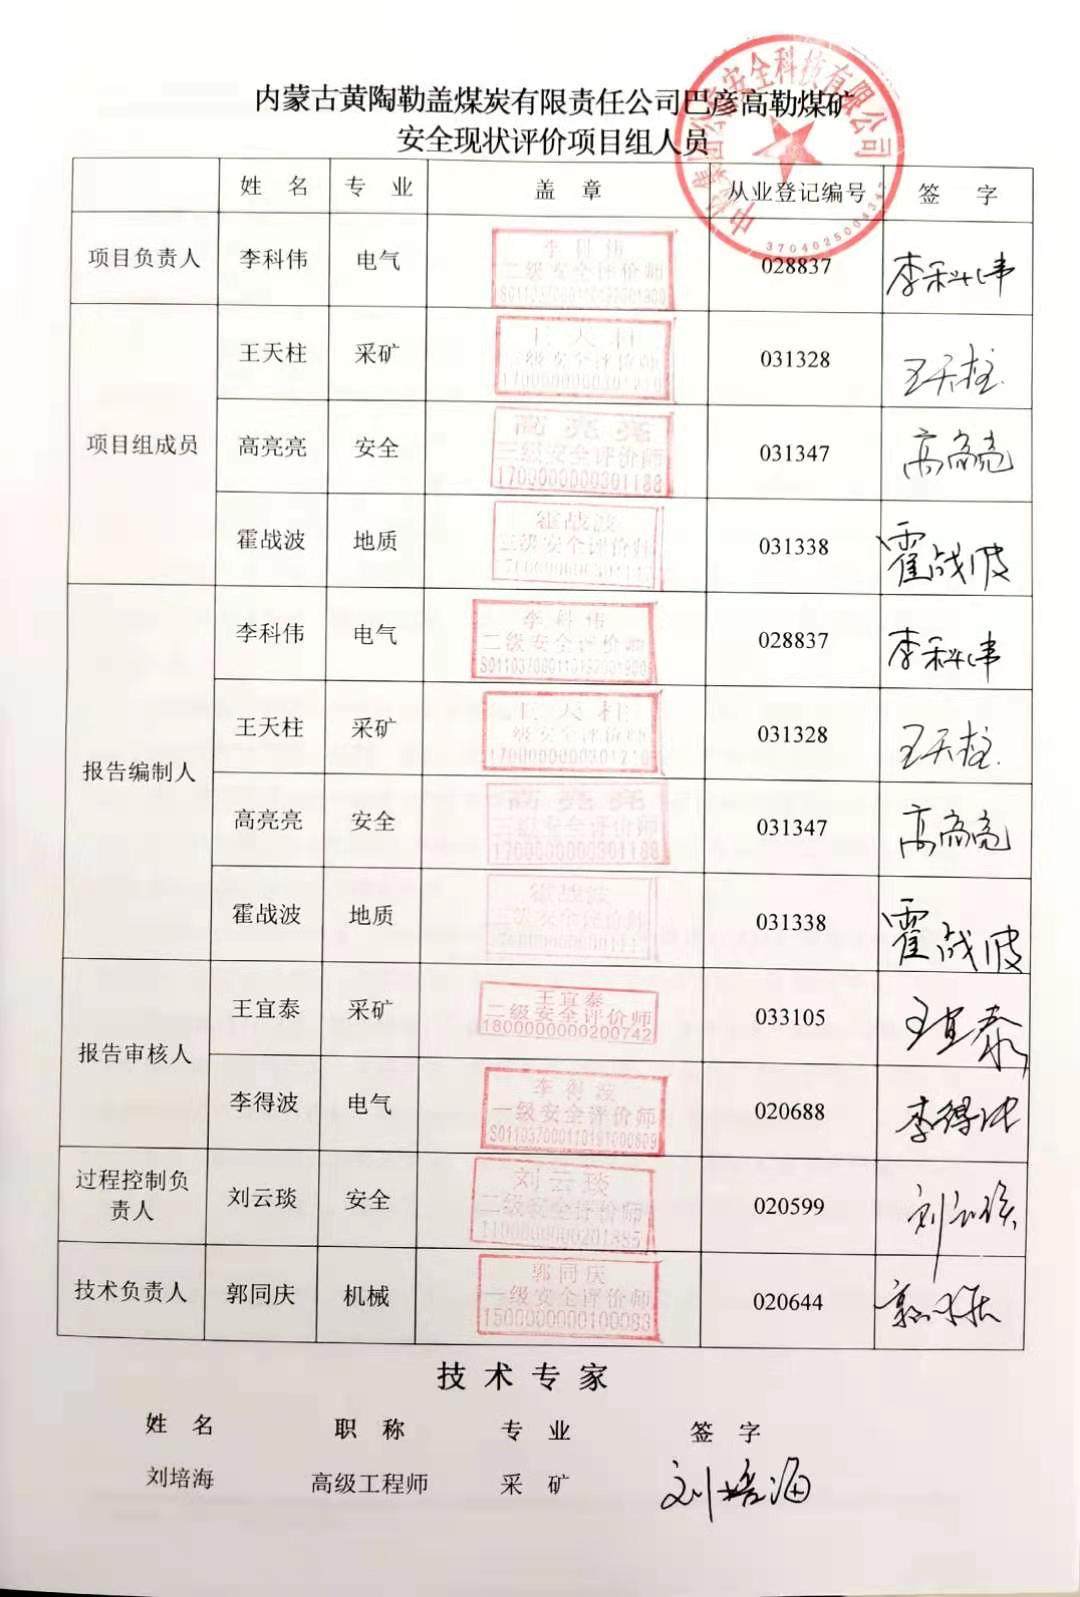 内蒙古黄陶勒盖煤炭有限责任公司巴彦高勒煤矿
安全现状评价项目组人员
安全科技有限公司
3704025004347
姓 名 专 业 盖 章 从业登记编号 签 字
项目负责人 李科伟 电气 李科伟 二级安全评价师 028837 李科伟
项目组成员
王天柱 采矿 王天柱 三级安全评价师 1700000000301210 031328 王天柱
高亮亮 安全 高亮亮 三级安全评价师 1700000000301188 031347 高亮亮
霍战波 地质 霍战波 三级安全评价师 031338 霍战波
报告编制人
李科伟 电气 李科伟 二级安全评价师 028837 李科伟
王天柱 采矿 王天柱 级安全评价师 1700000000301210 031328 王天柱
高亮亮 安全 高亮亮 三级安全评价师 1700000000301188 031347 高亮亮
霍战波 地质 霍战波 三级安全评价师 031338 霍战波
报告审核人
王宜泰 采矿 王宜泰 二级安全评价师 1800000000200742 033105 王宜泰
李得波 电气 李得波 一级安全评价师 S011037000110191000809 020688 李得波
过程控制负
责人
刘云琰 安全 刘云琰 二级安全评价师 1100000000201885 020599 刘云琰
技术负责人 郭同庆 机械 郭同庆 一级安全评价师 1500000000100083 020644 郭同庆
技 术 专 家
姓 名 职 称 专 业 签 字
刘培海 高级工程师 采 矿 刘培海